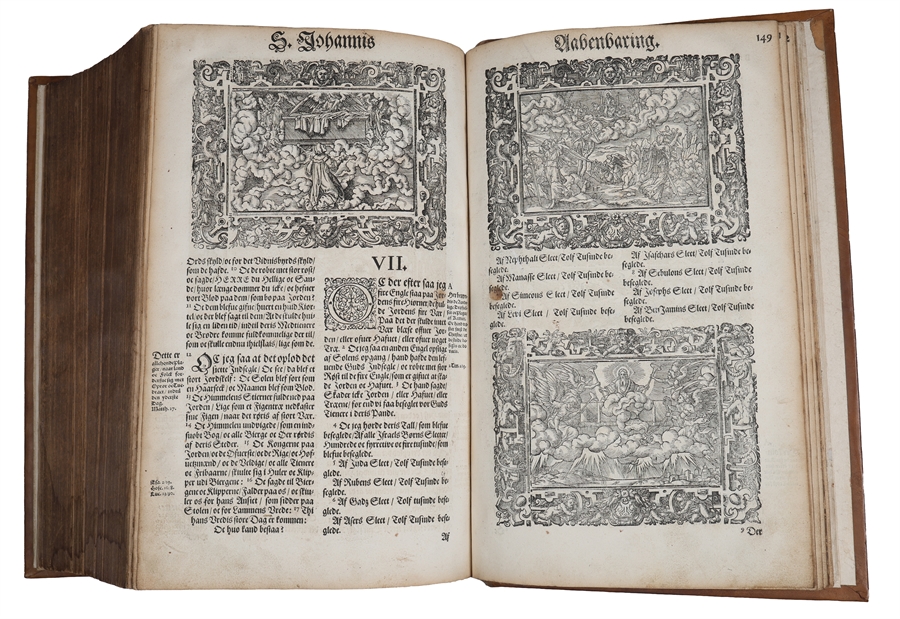 S. Johannis
Ords skyld/ oc for det Vidnisbyrds skyld/
som de hafde. 10 Oc de robte met stor røst/
oc sagde/ HERRE du Hellige oc San-
de/ huor længe dømmer du icke/ oc hefner
vort Blod paa dem/ som bo paa Jorden?
11 Oc dem bleffue gifne/ huert en huid Kior-
tel/ oc der blef sagt til dem/ At de skulde huile
le sig en liden tid/ indtil deris Medtienere
oc Brødre komme fuldkommelige der til/
som oc skulle endnu ihielslais/ lige som de.
12
OC jeg saa at det oplod det
siette Indsegle/ Oc see/ da blef et
stort Jordskelf: Oc Solen blef sort som
en Haarseck/ oc Maanen blef som Blod.
13 Oc Himmelens Stierner fulde ned paa
Jorden/ Lige som et Figentræ nedkaster
sine Figen/ naar det røris af stort Vær.
14 Oc Himmelen undvigede/ som en ind-
suøbt Bog/ oc alle Bierge oc Øer rørdis
af deris Steder. 15 Oc Kongerne paa
Jorden oc de Ofuerste/ oc de Rige/ oc Høf-
uetzmænd/ oc de Veldige/ oc alle Tienere
oc Fribaarne/ skiulte sig i Huler oc Klip-
per udi Biergene: 16 Oc sagde til Bier-
gene oc Klipperne/ Falder paa os/ oc skiu-
ler os for hans Ansict/ som sidder paa
Stolen/ oc for Lammens Vrede: 17 Thi
hans Vredis store Dag er kommen:
Oc huo kand bestaa?
Dette er
Matth. 17.
VII.
OC der efter saa jeg
fire Engle staa paa Jor-
dens fire Hiørner/ de hul-
de Jordens fire Vær/
Paa det der skulde intet
Vær blæse ofuer Jor-
den/ eller ofuer Hafuet/ eller ofuer noget
Træ. 2 Oc jeg saa en anden Engel opstige
af Solens opgang/ hand hafde den lef-
uende Guds Indsegle/ oc robte met stor
Røst til de fire Engle/ som er gifuet at ska-
de Jorden oc Hafuet. 3 Oc hand sagde/
Skader icke Jorden / eller Hafuet/ eller
Træene/ for end vi faa beseglet vor Guds
Tienere i deris Pande.
4 Oc jeg hørde deris Tall/ som blefue
beseglede: Af alle Israels Børns Slecter/
Hundrede oc fyrretiuve oc fire tusinde/ som
blefue beseglede.
5 Af Juda Slect / Tolf Tusinde bese-
glede.
Af Rubens Slect / Tolf Tusinde bese-
glede.
6 Af Gadz Slect / Tolf tusinde bese-
glede.
Af Asers Slect / Tolf Tusinde bese-
glede.
Af
A
Aabenbaring.
149
Af Nephthali Slect / Tolf Tusinde be-
seglede.
Af Manasse Slect / Tolf Tusinde
beseglede.
7 Af Simeons Slect / Tolf Tusinde
beseglede.
Af Levi Slect / Tolf Tusinde bese-
glede.
Af Isaschars Slect / Tolf Tusinde be-
seglede.
8 Af Sebulons Slect / Tolf Tusinde
beseglede.
Af Josephs Slect / Tolf Tusinde
beseglede.
Af Ben Jamins Slect / Tolf Tusinde
beseglede.
9 Der